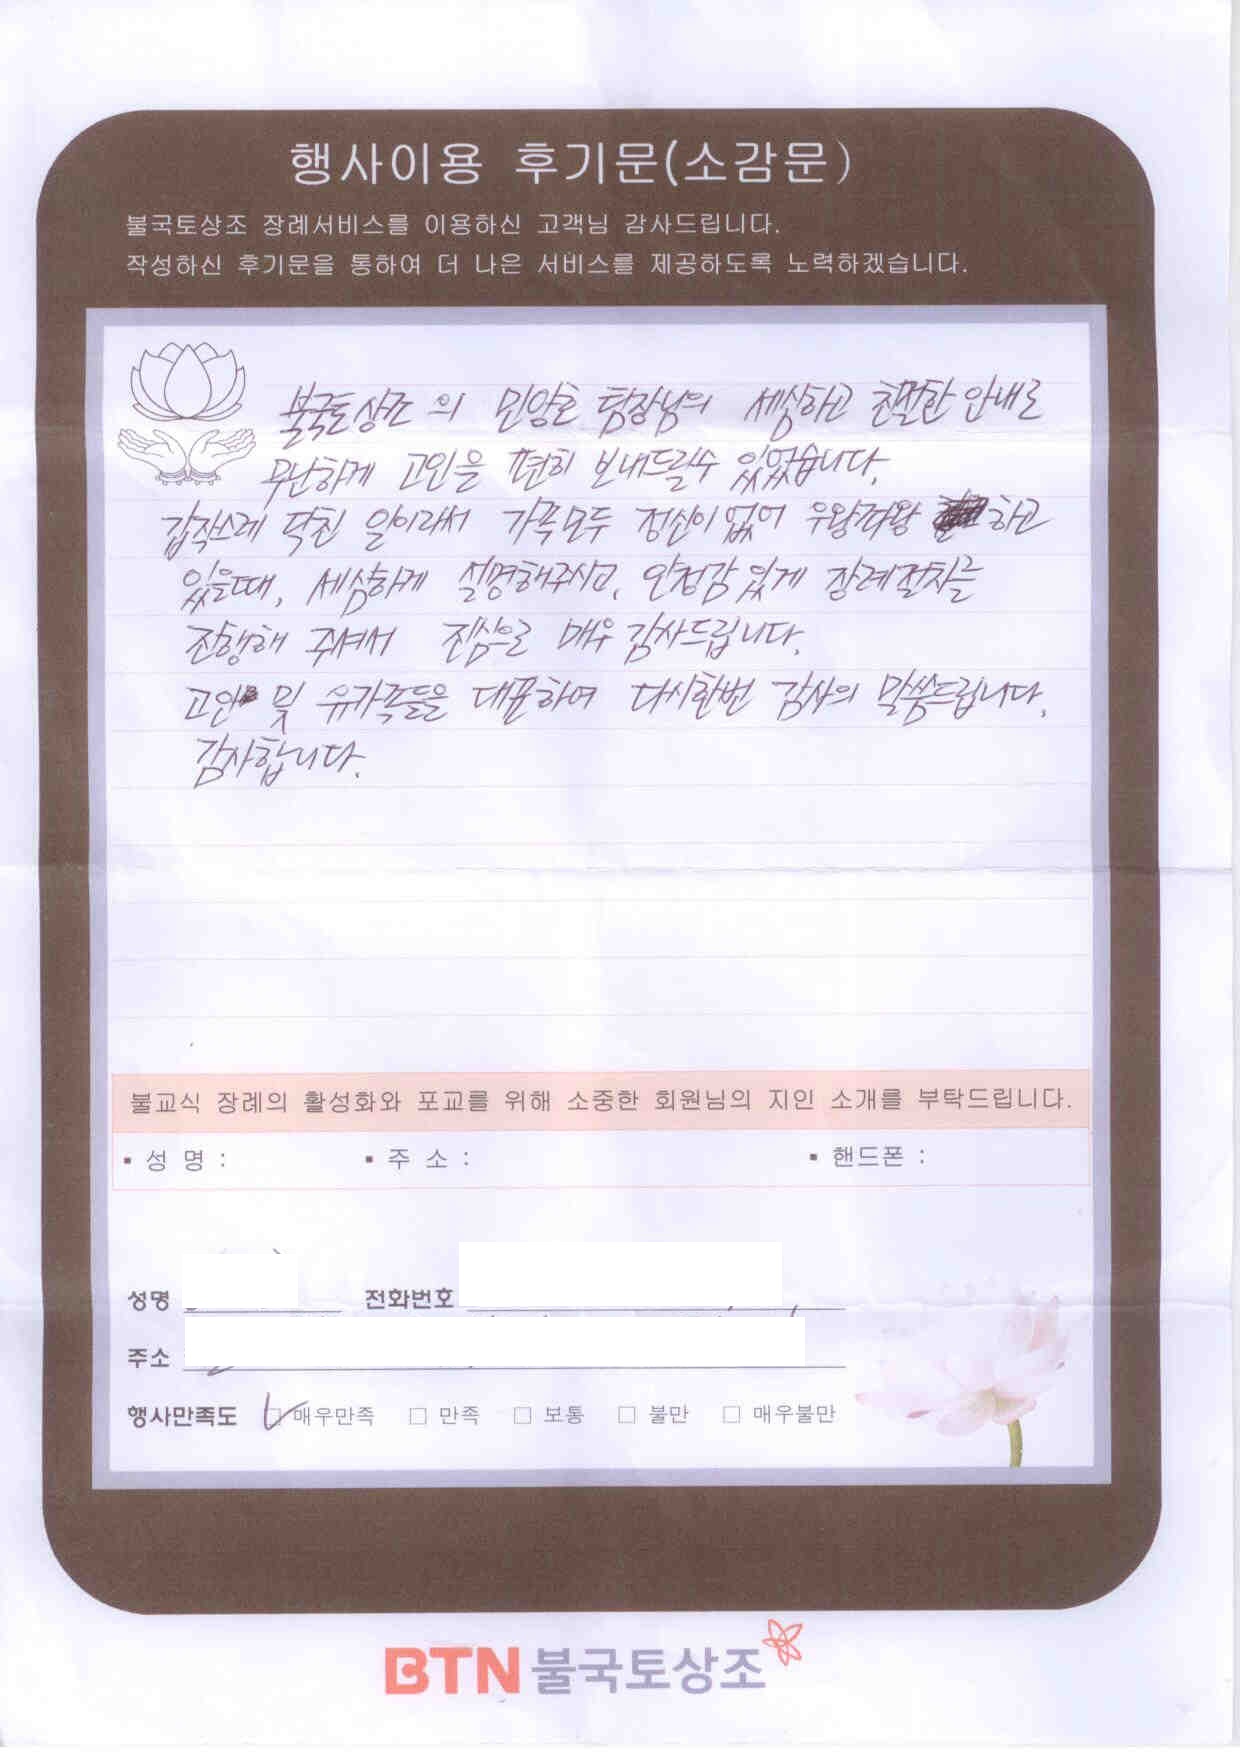 행사이용 후기문(소감문)
불국토상조 장례서비스를 이용하신 고객님 감사드립니다.
작성하신 후기문을 통하여 더 나은 서비스를 제공하도록 노력하겠습니다.
불국토상조의 민양호 팀장님의 세심하고 친절한 안내로
무난하게 고인을 편히 보내드릴수 있었습니다.
갑작스레 닥친 일이라서 가족모두 정신이 없어 우왕좌왕 하고
있을때, 세심하게 설명해주시고, 안정감 있게 장례절차를
진행해 주셔서 진심으로 매우 감사드립니다.
고인 및 유가족들을 대표하여 다시한번 감사의 말씀드립니다.
감사합니다.
불교식 장례의 활성화와 포교를 위해 소중한 회원님의 지인 소개를 부탁드립니다.
▪ 성 명 : ▪ 주 소 : ▪ 핸드폰 :
성명 전화번호
주소
행사만족도 ☑ 매우만족 □ 만족 □ 보통 □ 불만 □ 매우불만
BTN 불국토상조